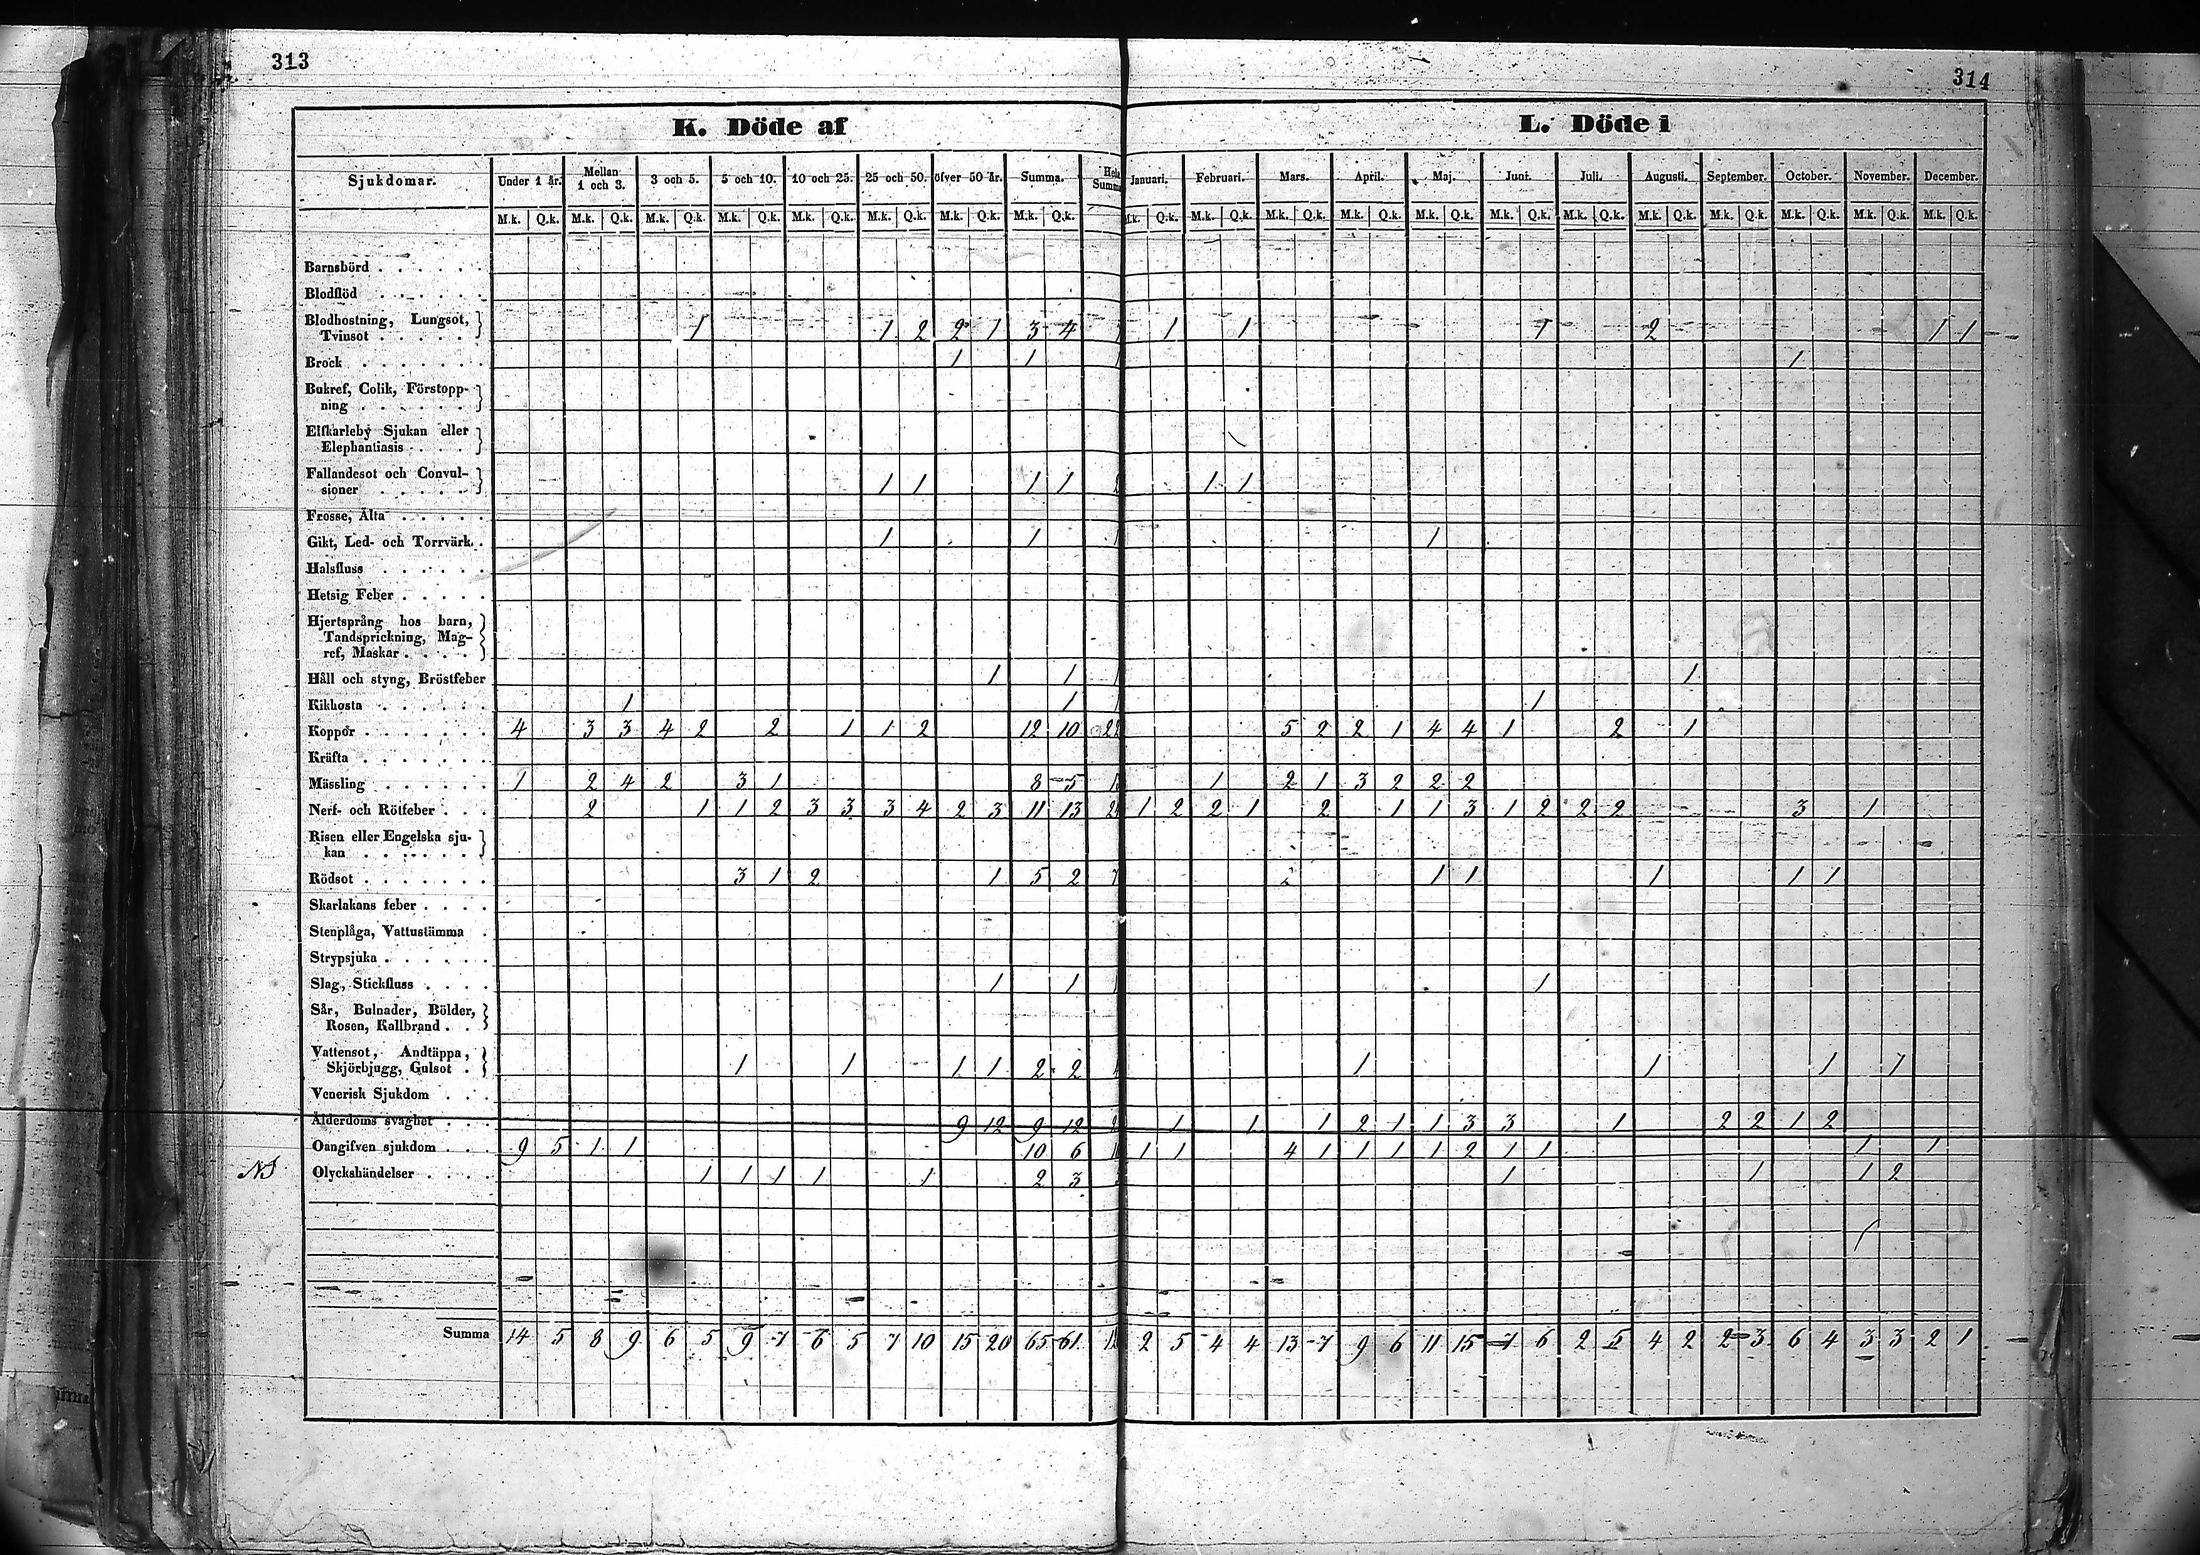 313
314
K. Döde af
L. Döde i
Sjukdomar. Under 1 år. Mellan 1 och 3. 3 och 5. 5 och 10. 10 och 25. 25 och 50. öfver 50 år. Summa. Hela Summa Januari. Februari. Mars. April. Maj. Juni. Juli. Augusti. September. October. November. December.
M.k. Q.k. M.k. Q.k. M.k. Q.k. M.k. Q.k. M.k. Q.k. M.k. Q.k. M.k. Q.k. M.k. Q.k. M.k. Q.k. M.k. Q.k. M.k. Q.k. M.k. Q.k. M.k. Q.k. M.k. Q.k. M.k. Q.k. M.k. Q.k. M.k. Q.k. M.k. Q.k. M.k. Q.k. M.k. Q.k.
Barnsbörd
Blodflöd
Blodhostning, Lungsot,
Tvinsot 1 1 2 2 1 3 4 1 1 1 2 1 1
Brock 1 1 1 1
Bukref, Colik, Förstopp-
ning
Elfkarleby Sjukan eller
Elephantiasis
Fallandesot och Convul-
sioner 1 1 1 1 1 1
Frosse, Älta
Gikt, Led- och Torrvärk 1 1 1 1
Halsfluss
Hetsig Feber
Hjertsprång hos barn,
Tandsprickning, Mag-
ref, Maskar
Håll och styng, Bröstfeber 1 1 1 1
Kikhosta 1 1 1 1
Koppor 4 3 3 4 2 2 1 1 2 12 10 22 5 2 2 1 4 4 1 2 1
Kräfta
Mässling 1 2 4 2 3 1 8 5 1 2 1 3 2 2 2
Nerf- och Rötfeber 2 1 1 2 3 3 3 4 2 3 11 13 1 2 2 1 2 1 1 3 1 2 2 2 3 1
Risen eller Engelska sju-
kan
Rödsot 3 1 2 1 5 2 7 2 1 1 1 1 1
Skarlakans feber
Stenplåga, Vattustämma
Strypsjuka
Slag, Stickfluss 1 1 1 1
Sår, Bulnader, Bölder,
Rosen, Kallbrand
Vattensot, Andtäppa,
Skjörbjugg, Gulsot 1 1 1 1 2 2 1 1 1 1
Venerisk Sjukdom
Ålderdoms svaghet 9 12 9 12 1 1 1 2 1 1 3 3 1 2 2 1 2
Oangifven sjukdom 9 5 1 1 10 6 1 1 4 1 1 1 1 2 1 1 1 1
Olyckshändelser 1 1 1 1 1 2 3 1 1 1 2
Summa 14 5 8 9 6 5 9 7 6 5 7 10 15 20 65 61 2 5 4 4 13 7 9 6 11 15 7 6 2 5 4 2 2 3 6 4 3 3 2 1